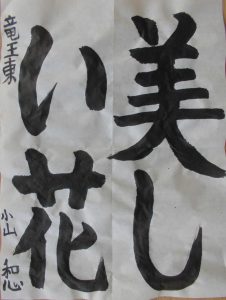 美し
い花
竜王東
小山 和心